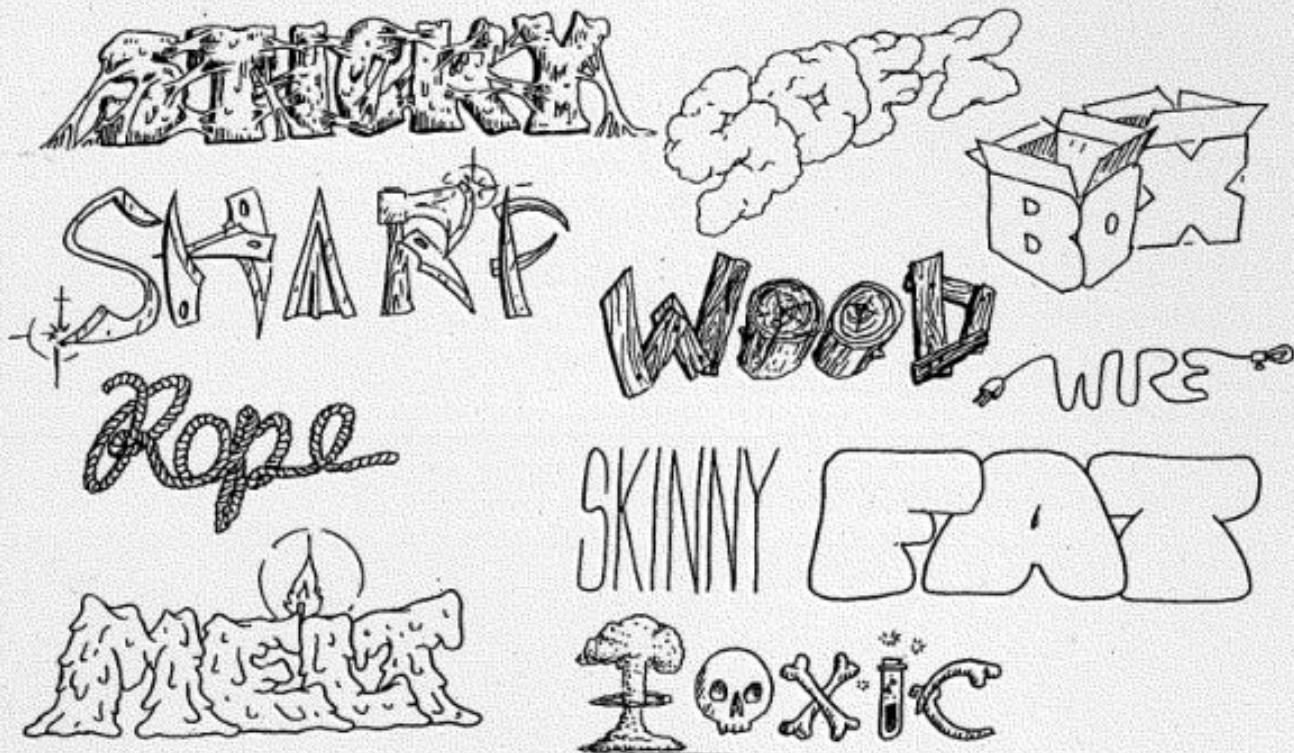 STICKY
SOFT
BOX
SHARP
WOOD
WIRE
Rope
SKINNY
FAT
MELT
TOXIC